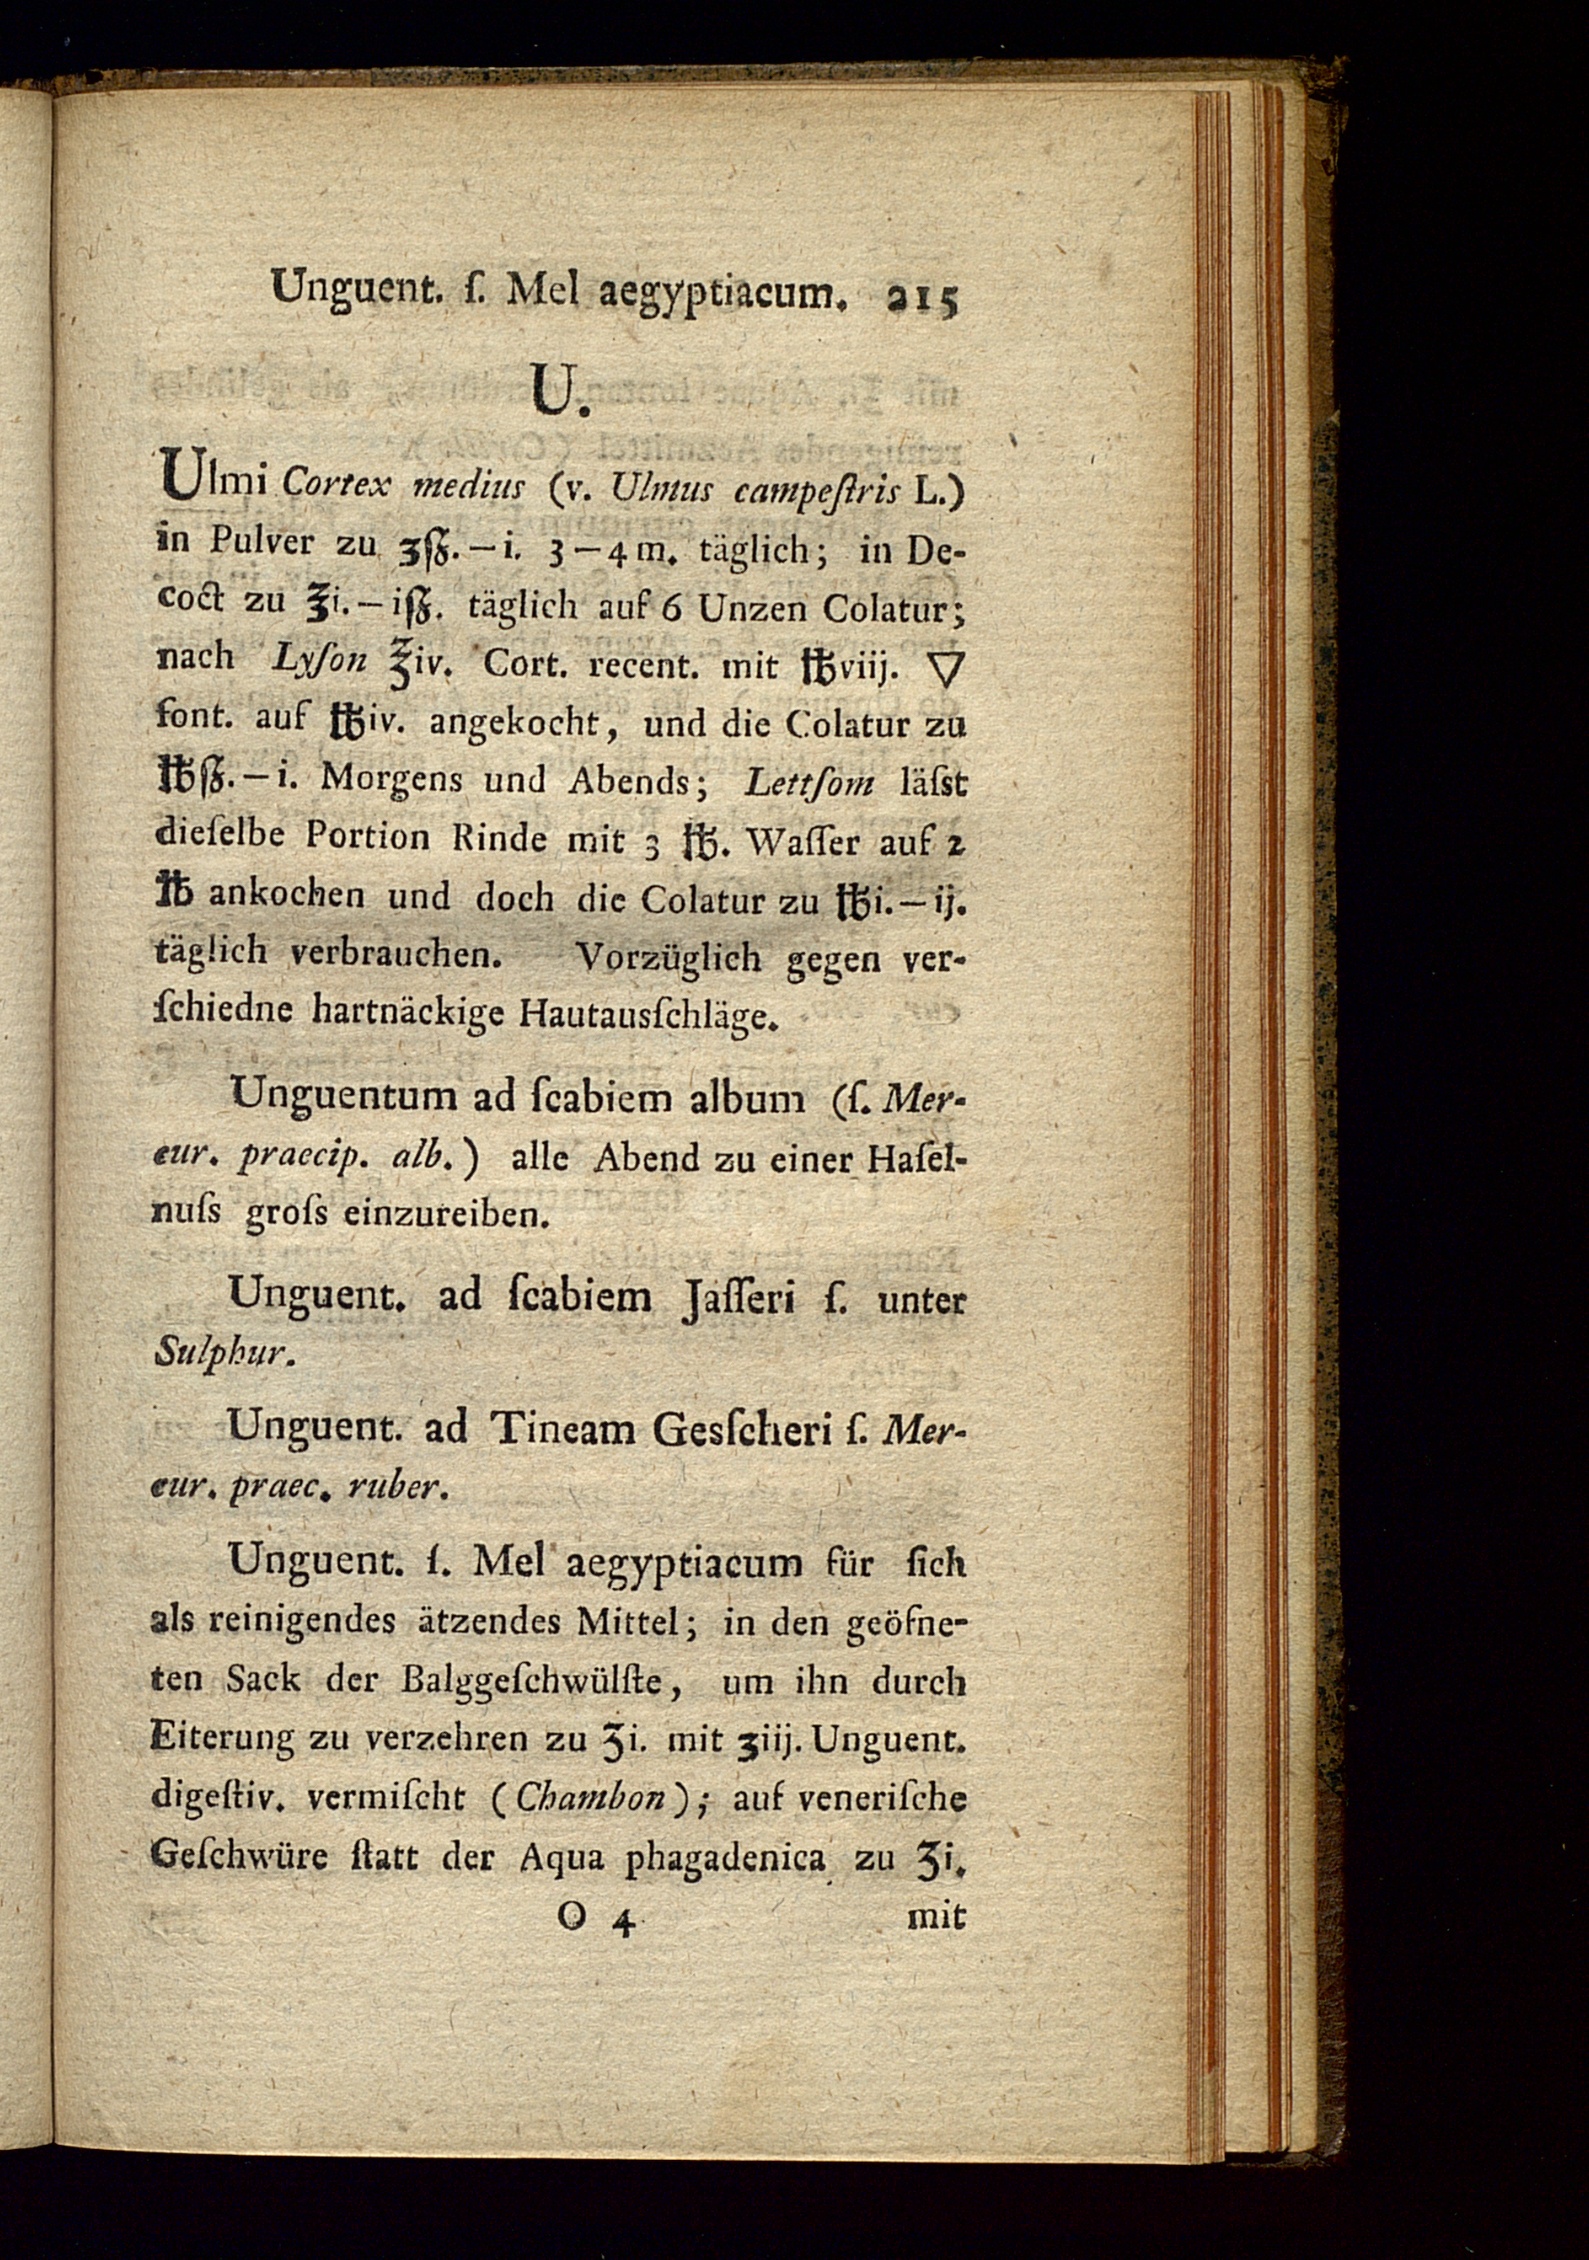 Unguent. ſ. Mel aegyptiacum. 215
U.
Ulmi Cortex medius (v. Ulmus campeſtris L.)
in Pulver zu ʒſʒ. — i. 3 — 4 m. täglich; in De-
coct zu ℥i. — iſʒ. täglich auf 6 Unzen Colatur;
nach Lyſon ℥iv. Cort. recent. mit ℔viij. ▽
font. auf ℔iv. angekocht, und die Colatur zu
℔ſʒ. — i. Morgens und Abends; Lettſom läſst
dieſelbe Portion Rinde mit 3 ℔. Waſſer auf 2
℔ ankochen und doch die Colatur zu ℔i. — ij.
täglich verbrauchen. Vorzüglich gegen ver-
ſchiedne hartnäckige Hautausſchläge.
Unguentum ad ſcabiem album (ſ. Mer-
cur. praecip. alb.) alle Abend zu einer Haſel-
nuſs groſs einzureiben.
Unguent. ad ſcabiem Jaſſeri ſ. unter
Sulphur.
Unguent. ad Tineam Gesſcheri ſ. Mer-
cur. praec. ruber.
Unguent. ſ. Mel aegyptiacum für ſich
als reinigendes ätzendes Mittel; in den geöfne-
ten Sack der Balggeſchwülſte, um ihn durch
Eiterung zu verzehren zu ℥i. mit ʒiij. Unguent.
digeſtiv. vermiſcht (Chambon); auf veneriſche
Geſchwüre ſtatt der Aqua phagadenica zu ℥i.
O 4 mit